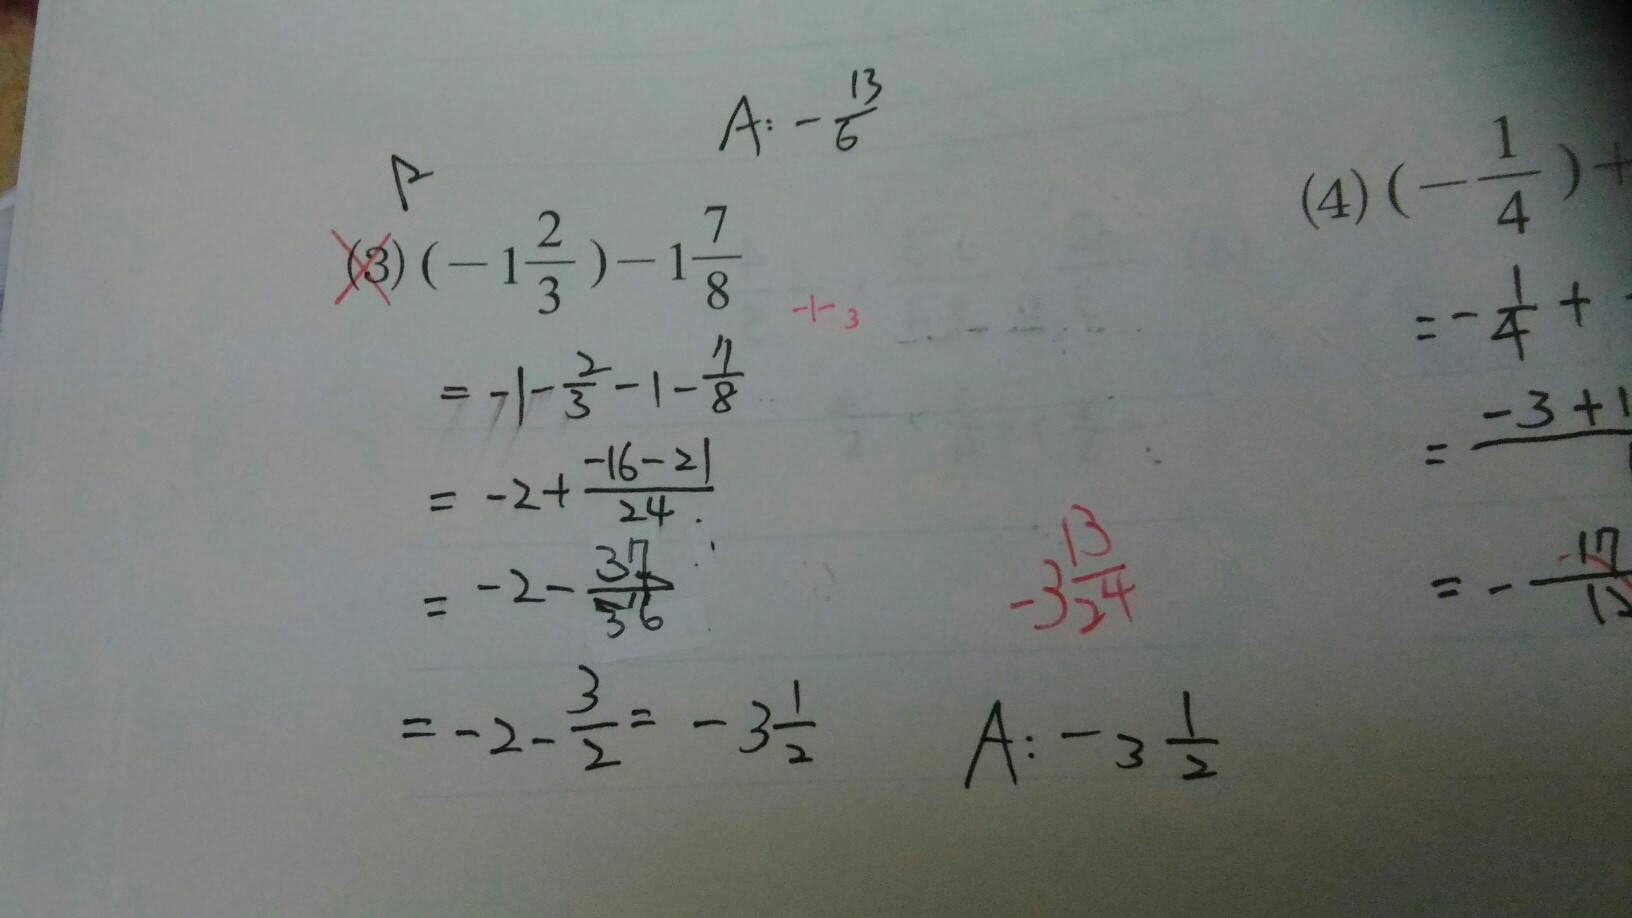 A: -13/6
(3) (-1 2/3) - 1 7/8
-1-3
= -1 - 2/3 - 1 - 7/8
= -2 + (-16-21)/24
= -2 - 37/36
-3 13/24
= -2 - 3/2 = -3 1/2
A: -3 1/2
(4) (-1/4) +
= -1/4 +
= -3+1
= -17/12